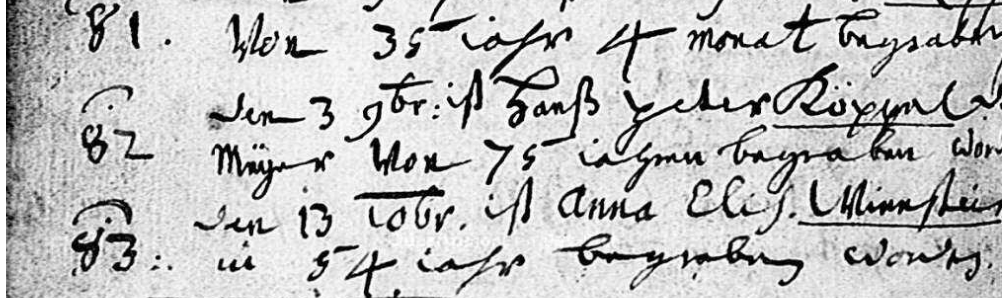 81. Von 35 iahr 4 monat begraben
den 3 9br: ist Hanß peter Köppel
82 Meyer Von 75 iahren begraben word
den 13 10br. ist Anna Elis. Winnstei
83:. in 54 iahr begraben worden.